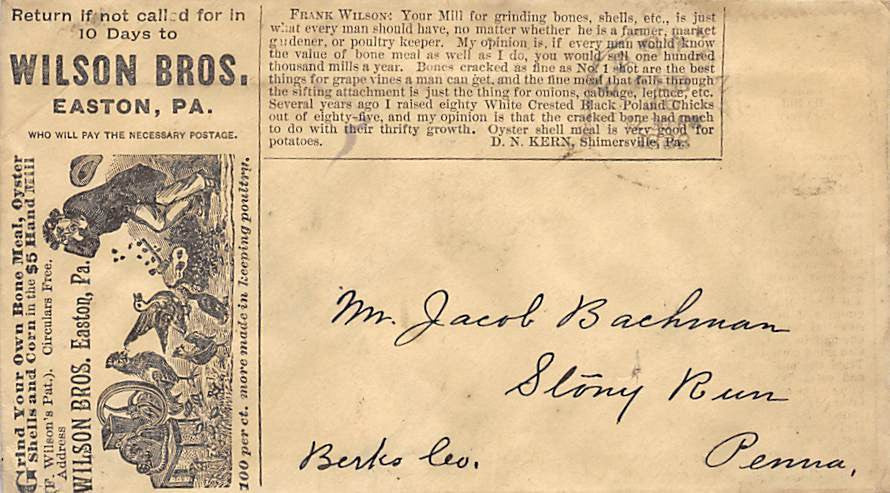 Return if not called for in
10 Days to
WILSON BROS.
EASTON, PA.
WHO WILL PAY THE NECESSARY POSTAGE.
FRANK WILSON: Your Mill for grinding bones, shells, etc., is just
what every man should have, no matter whether he is a farmer, market
gardener, or poultry keeper. My opinion is, if every man would know
the value of bone meal as well as I do, you would sell one hundred
thousand mills a year. Bones cracked as fine as No. 1 shot are the best
things for grape vines a man can get, and the fine meal that falls through
the sifting attachment is just the thing for onions, cabbage, lettuce, etc.
Several years ago I raised eighty White Crested Black Poland Chicks
out of eighty-five, and my opinion is that the cracked bone had much
to do with their thrifty growth. Oyster shell meal is very good for
potatoes. D. N. KERN, Shimersville, Pa.
Grind Your Own Bone Meal, Oyster
Shells and Corn in the $5 Hand Mill
(F. Wilson's Pat.). Circulars Free.
Address
WILSON BROS. Easton, Pa.
100 per ct. more made in keeping poultry.
Mr. Jacob Bachman
Stony Run
Berks Co.
Penna,